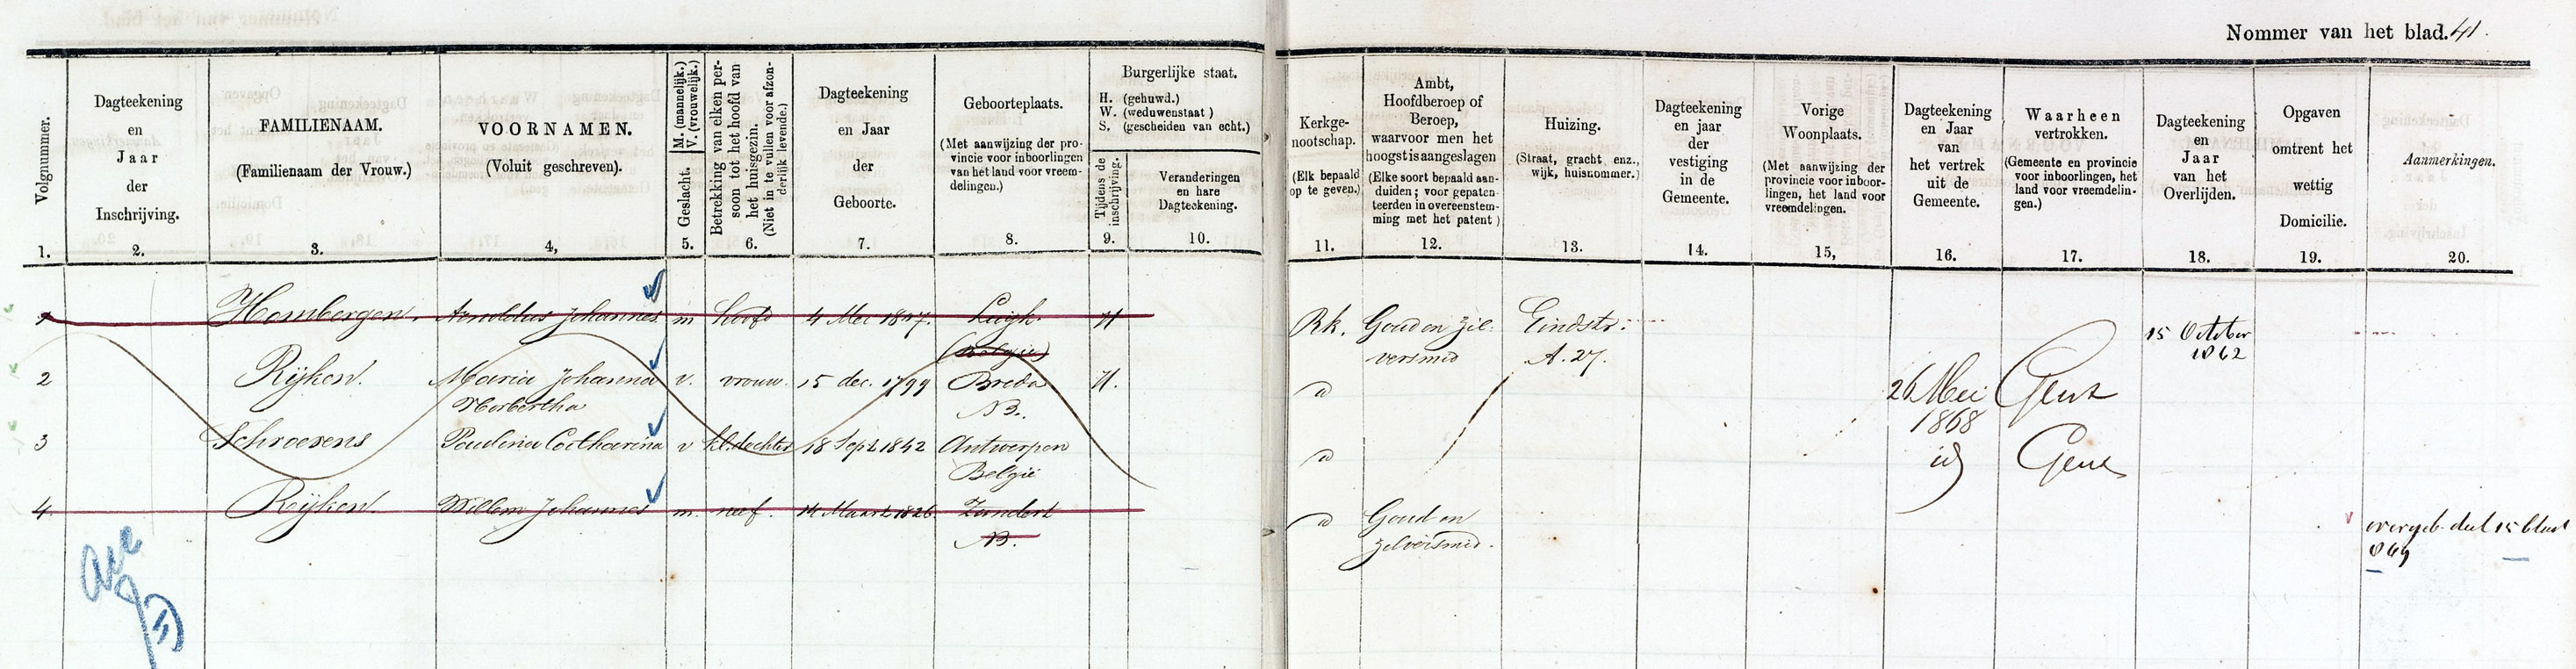 Nommer van het blad. 41.
Volgnummer.
1.
Dagteekening
en
Jaar
der
Inschrijving.
2.
FAMILIENAAM.
(Familienaam der Vrouw.)
3.
VOORNAMEN.
(Voluit geschreven).
4,
M. (mannelijk.)
V. (vrouwelijk.)
Geslacht.
5.
Betrekking van elken per-
soon tot het hoofd van
het huisgezin.
(Niet in te vullen voor afzon-
derlijk levende.)
6.
Dagteekening
en Jaar
der
Geboorte.
7.
Geboorteplaats.
(Met aanwijzing der pro-
vincie voor inboorlingen
van het land voor vreem-
delingen.)
8.
Burgerlijke staat.
H. (gehuwd.)
W. (weduwenstaat)
S. (gescheiden van echt.)
Tijdens de
inschrijving.
9.
Veranderingen
en hare
Dagteekening.
10.
Kerkge-
nootschap.
(Elk bepaald
op te geven.)
11.
Ambt,
Hoofdberoep of
Beroep,
waarvoor men het
hoogst is aangeslagen
(Elke soort bepaald aan-
duiden; voor gepaten-
teerden in overeenstem-
ming met het patent)
12.
Huizing.
(Straat, gracht, enz.,
wijk, huisnommer.)
13.
Dagteekening
en jaar
der
vestiging
in de
Gemeente.
14.
Vorige
Woonplaats.
(Met aanwijzing der
provincie voor inboor-
lingen, het land voor
vreemdelingen.
15,
Dagteekening
en Jaar
van
het vertrek
uit de
Gemeente.
16.
Waarheen
vertrokken.
(Gemeente en provincie
voor inboorlingen, het
land voor vreemdelin-
gen.)
17.
Dagteekening
en
Jaar
van het
Overlijden.
18.
Opgaven
omtrent het
wettig
Domicilie.
19.
Aanmerkingen.
20.
1 Hombergen. Arnoldus Johannes m hoofd 4 Mei 1797. Luijk H Rk. Goud en zil- Eindstr. 15 October
(België) versmid A. 27. 1862
2 Rijken. Maria Johanna v. vrouw. 15 dec. 1799 Breda H. d 26 Mei Gent
Norbertha NB. 1868
3 Schroesens Paulina Catharina v kl. dochter 18 Sept 1842 Antwerpen d id Gent
België
4 Rijken Willem Johannes m. neef. 14 Maart 1826 Zundert d Goud en overgeb. deel 15 blad
NB. zilversmid.